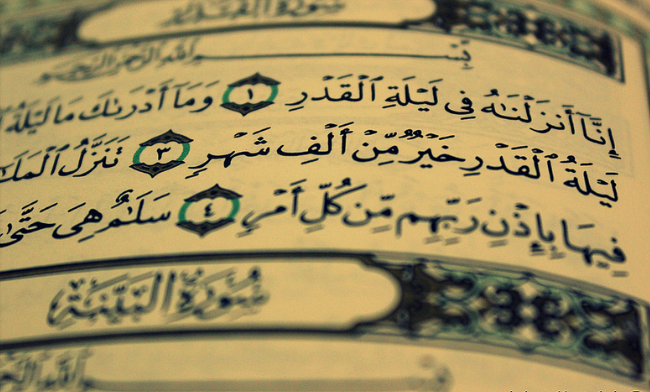 سُورَةُ الْقَدْرِ
بِسْمِ اللَّهِ الرَّحْمَٰنِ الرَّحِيمِ
إِنَّآ أَنزَلْنَٰهُ فِى لَيْلَةِ ٱلْقَدْرِ ١ وَمَآ أَدْرَىٰكَ مَا لَيْلَةُ
لَيْلَةُ ٱلْقَدْرِ خَيْرٌ مِّنْ أَلْفِ شَهْرٍ ٣ تَنَزَّلُ ٱلْمَلَ
فِيهَا بِإِذْنِ رَبِّهِم مِّن كُلِّ أَمْرٍ ٤ سَلَٰمٌ هِىَ حَتَّىٰ
سُورَةُ الْبَيِّنَةِ